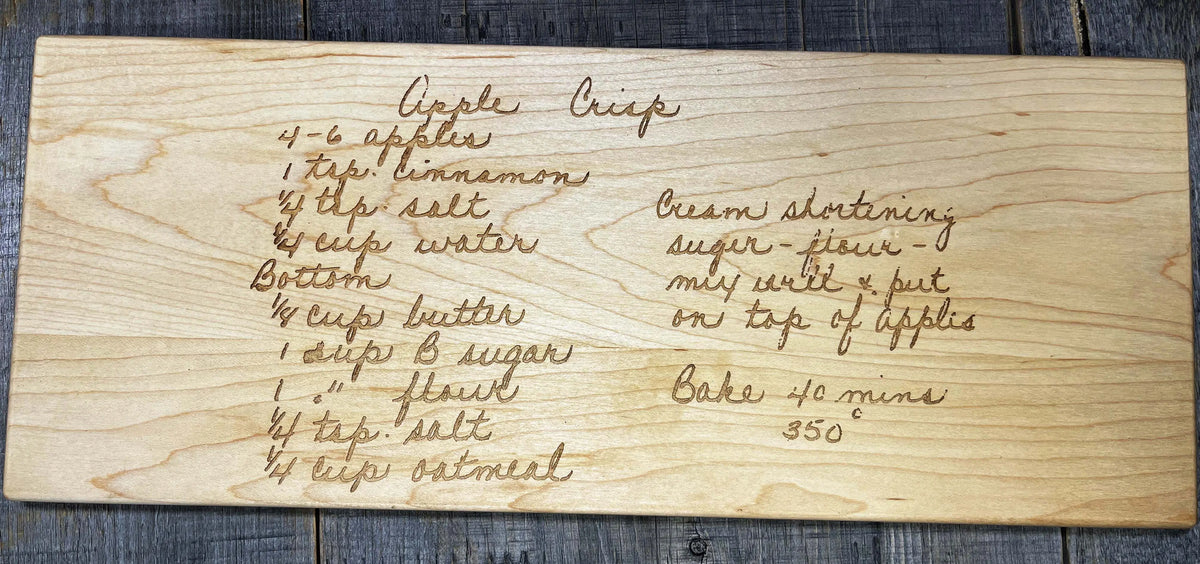 Apple Crisp
4-6 apples
1 tsp. cinnamon
1/4 tsp. salt
1/4 cup water
Bottom
1/8 cup butter
1 cup B sugar
1 " flour
1/4 tsp. salt
1/4 cup oatmeal
Cream shortening
suger - flour -
mix well & put
on top of apples
Bake 40 mins
350°